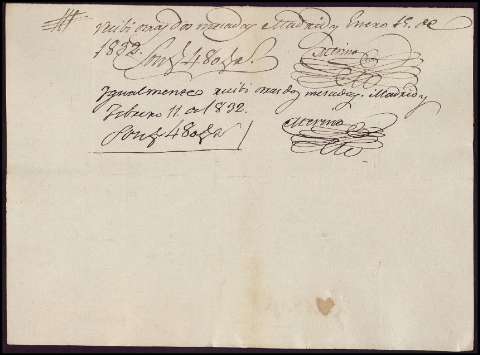 recibi otras dos mesadas Madrid y Enero 15. de
1832.
Son 480
Merino
Igualmente recibi otras dos mesadas. Madrid y
Febrero 11 de 1832.
Son 480
Merino